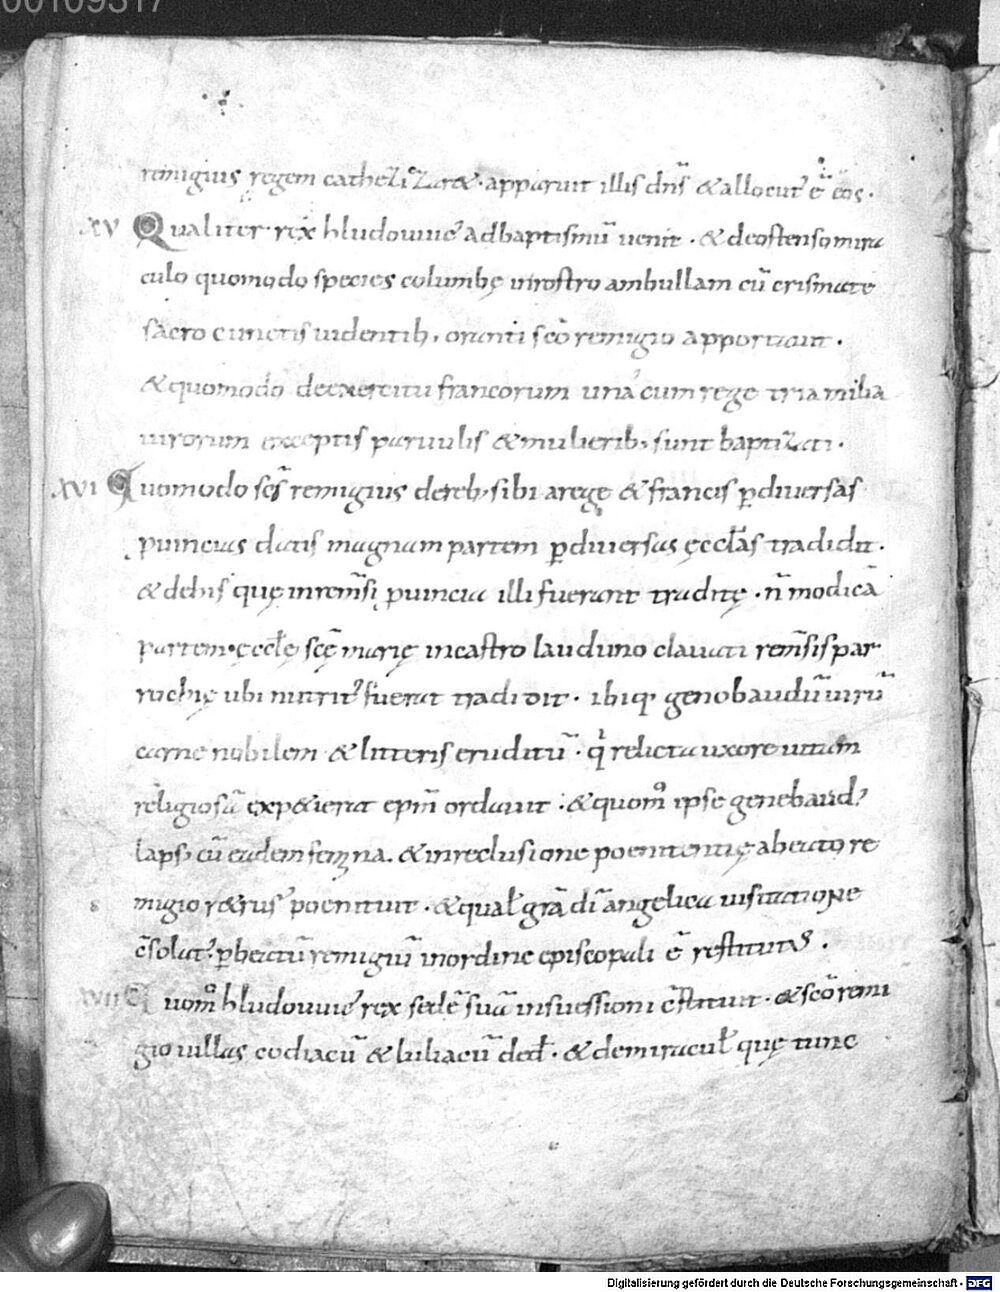 00109317
remigius regem cathezizar&. apparuit illis dn̄s &allocut᾿ ē eos.
XV Qualiter rex hludouuic᾿ adbaptismū uenit. & deostenso mira
culo quomodo species columbę inrostro ambullam cū crismate
sacro cunctis uidentib; oranti sc̄o remigio apportauit.
&quomodo deexercitu francorum una cum rege tria milia
uirorum exceptis paruulis &mulierib; sunt baptizati.
XVI Quomodo sc̄s remigius dereb; sibi arege & francis ꝑdiuersas
ꝓuincias datis magnam partem ꝑdiuersas ęccl̄as tradidit.
& dehis quę inrem̄si ꝓuincia illi fuerant traditę. n̄ modicā
partem ęccl̄ę sc̄ę marię incastro lauduno clauati rem̄sis par
rochię ubi nutrit᾿ fuerat tradidit. ibiq; genobaudū uirū
carne nobilem & litteris eruditū. q̇ relicta uxore uitam
religiosā exp&ierat ep̄m ordauit. &quom̊ ipse genebaud᾿
laps; cū eadem femina. &inreclusione poenitentię abeato re
migio r&rus᾿ poenituit. &qual̄ gr̄a dī angelica uisitatione
c̄solat᾿ ꝑbeatū remigiū inordine episcopali ē restitutus.
XVII Quom̊ hludouuic᾿ rex sedē suā insuessioni c̄stituit. &sc̄o remi
gio uillas codiacū & luliacū ded̄. & demiracul̄ quę tunc
Digitalisierung gefördert durch die Deutsche Forschungsgemeinschaft - DFG